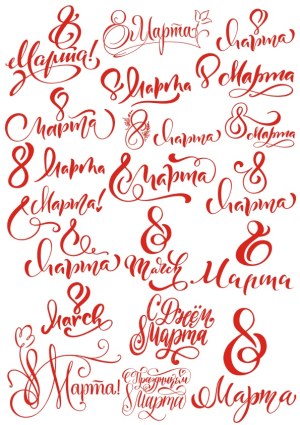 8
Марта!
8 Марта
8
Марта
8 Марта
8
Марта
8 Марта
8
Марта
8 Марта
8 Марта
8 Марта!
8
Марта
8
Марта
8
March
8
Марта
8
March
С Днём
8 Марта
8
Марта
8 Марта!
С Праздником
8 Марта